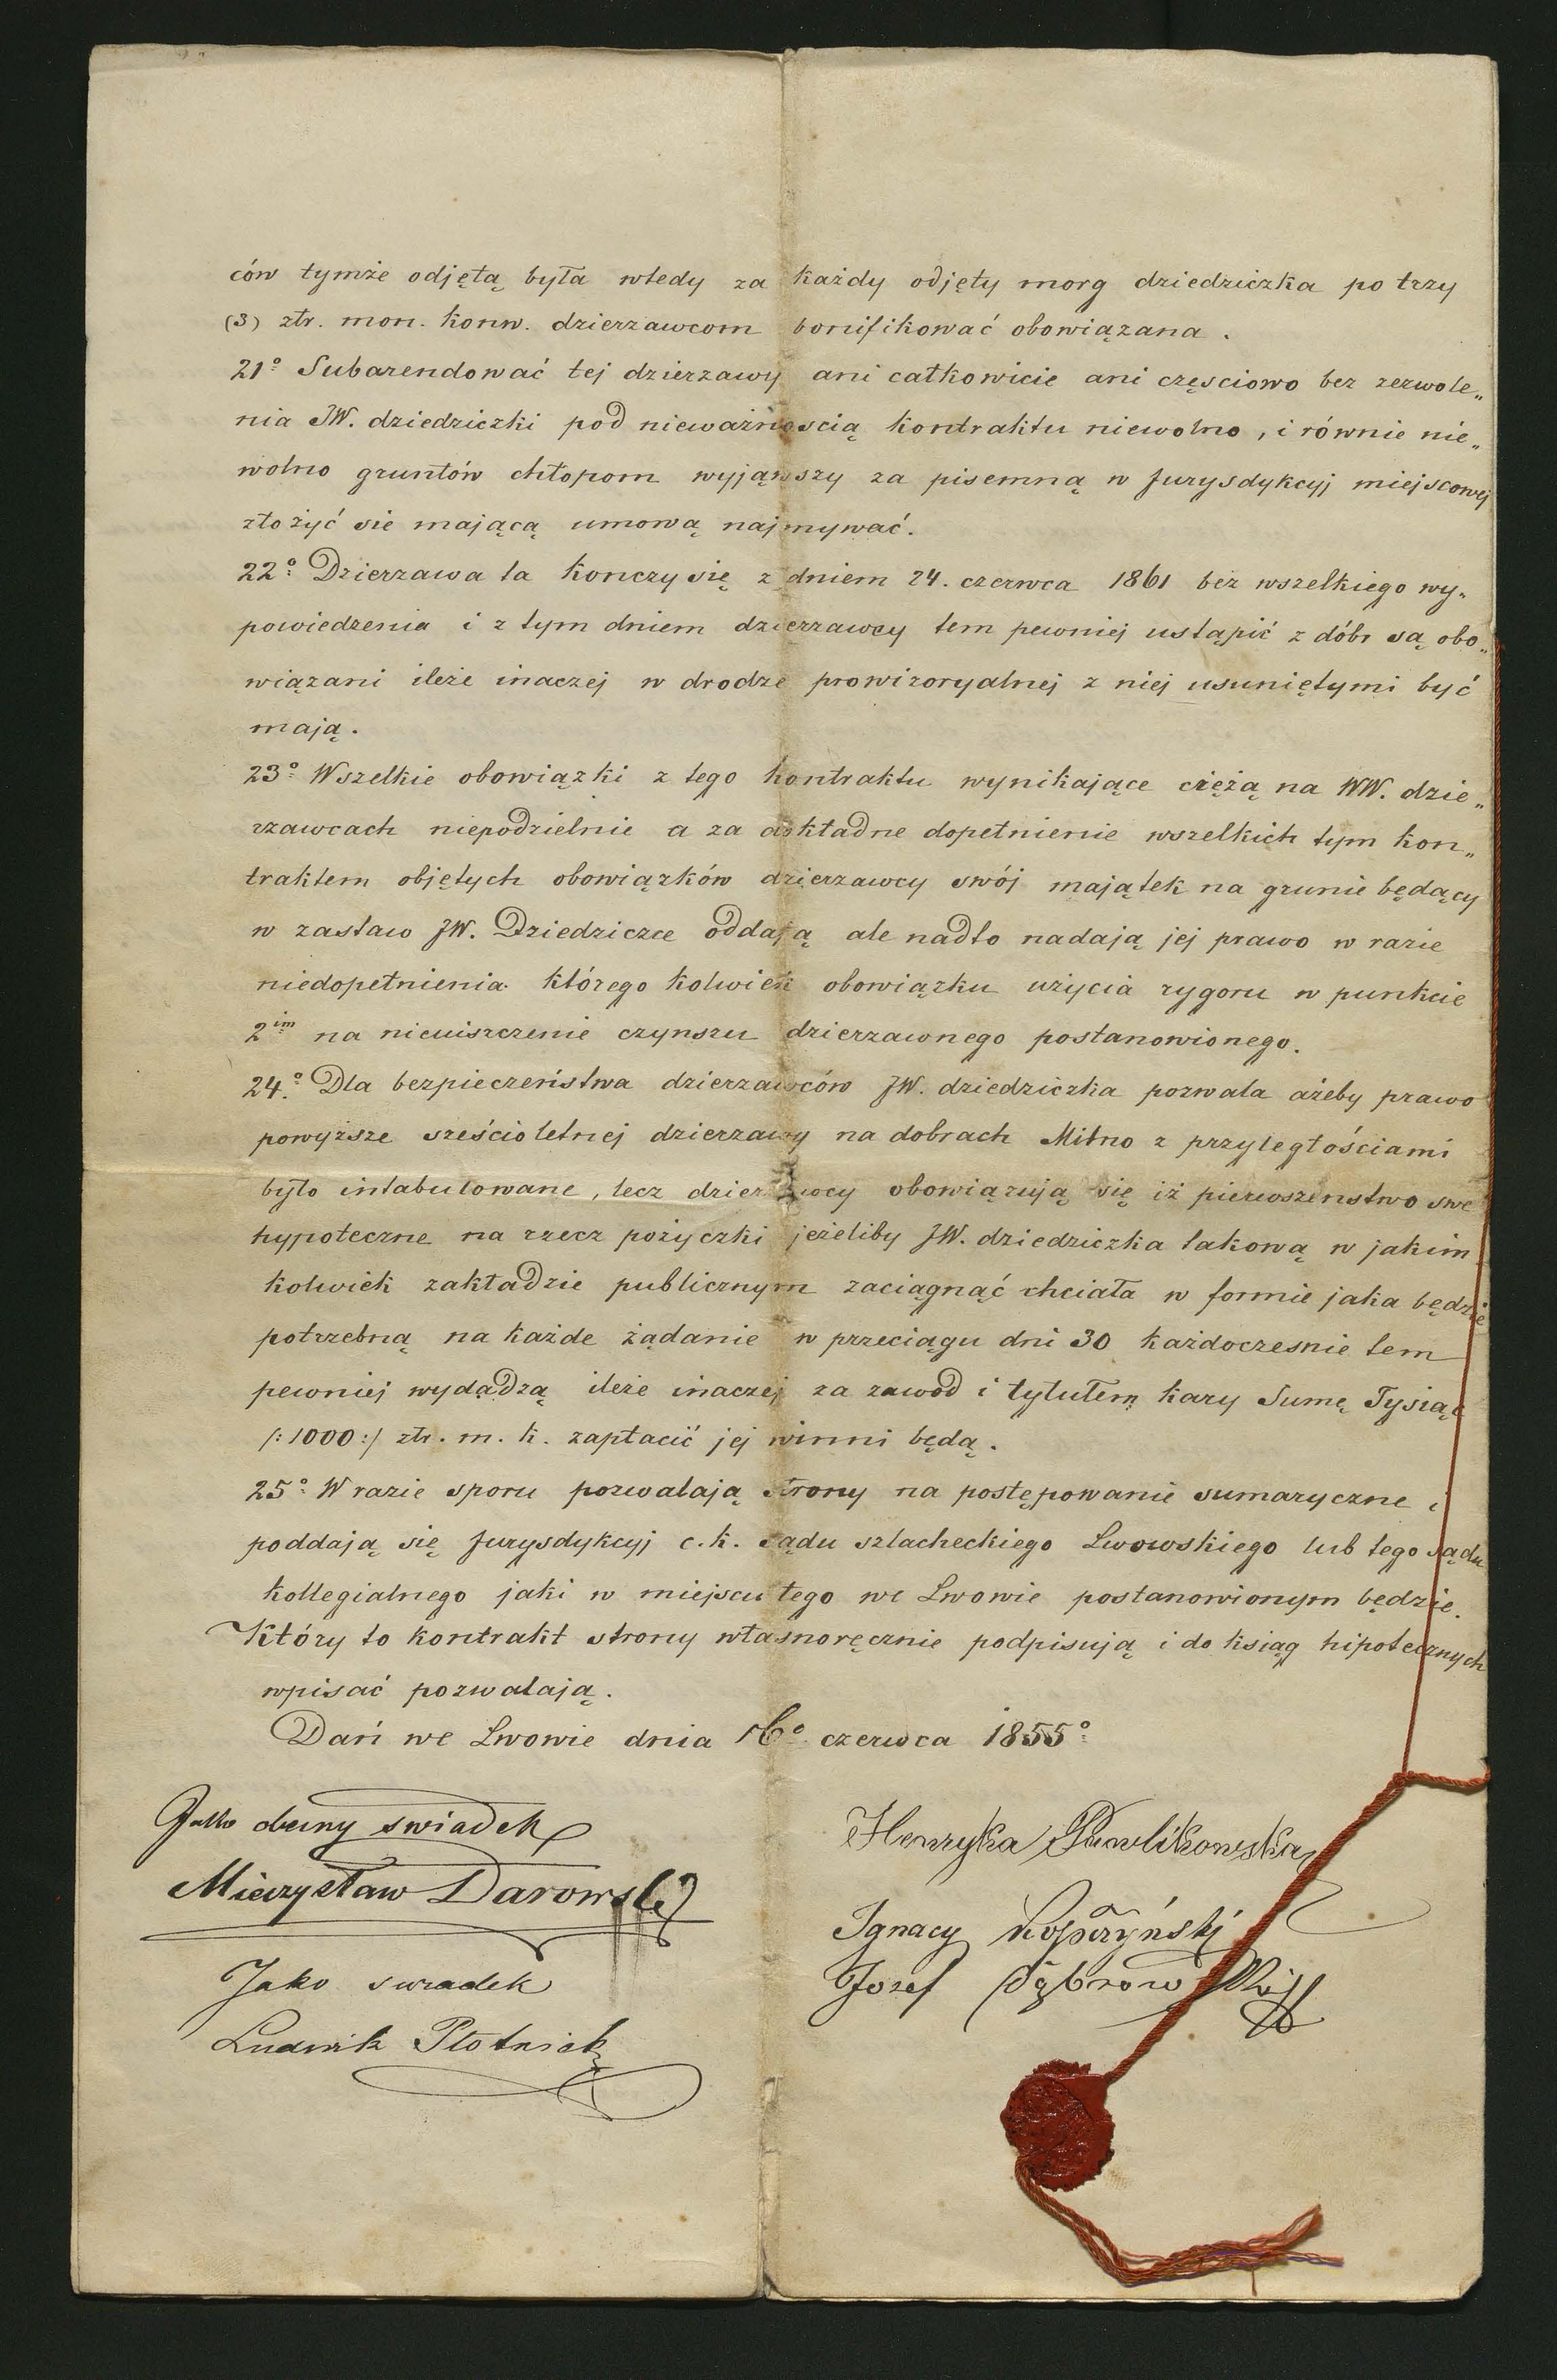 ców tymże odjętą była wtedy za każdy odjęty morg dziedziczka po trzy
(3) złr. mon. konw. dzierzawcom bonifikować obowiązana.
21º Subarendować tej dzierzawy ani całkowicie ani częsciowo bez zezwole„
nia JW. dziedziczki pod nieważnoscią kontraktu niewolno, i równie nie„
wolno gruntów chłopom wyjąwszy za pisemną w Jurysdykcyj miejscowej
złożyć sie mającą umową najmywać.
22º Dzierzawa ta konczy się z dniem 24. czerwca 1861 bez wszelkiego wy„
powiedzenia i z tym dniem dzierzawcy tem pewniej ustąpić z dóbr są obo„
wiązani ileże inaczej w drodze prowizoryalnej z niej usuniętymi być
mają.
23º Wszelkie obowiązki z tego kontraktu wynikające ciężą na WW. dzie„
rzawcach niepodzielnie a za dokładne dopełnienie wszelkich tym kon„
traktem objętych obowiązków dzierzawcy swój majątek na grunie będący
w zastaw JW. Dziedziczce oddają ale nadto nadają jej prawo w razie
niedopełnienia którego kolwiek obowiązku użycia rygoru w punkcie
2im na nieuiszczenie czynszu dzierzawnego postanowionego.
24º. Dla bezpieczeństwa dzierzawców JW. dziedziczka pozwala ażeby prawo
powyższe sześcioletniej dzierzawy na dobrach Mitno z przyległościami
było intabulowane, lecz dzierzawcy obowiązują się iż pierwszenstwo swe
hypoteczne na rzecz pożyczki jeżeliby JW. dziedziczka takową w jakim
kolwiek zakładzie publicznym zaciągnąć chciała w formie jaka będzie
potrzebną na każde żądanie w przeciągu dni 30 każdoczesnie tem
pewniej wydadzą ileże inaczej za zawód i tytułem kary Sumę Tysiąc
/:1000:/ złr. m. k. zapłacić jej winni będą.
25º W razie sporu pozwalają strony na postępowanie sumaryczne i
poddają się Jurysdykcyj c. k. sądu szlacheckiego Lwowskiego lub tego sądu
kollegialnego jaki w miejscu tego we Lwowie postanowionym będzie.
Który to kontrakt strony własnoręcznie podpisują i do ksiąg hipotecznych
wpisać pozwalają.
Dań we Lwowie dnia 16º czerwca 1855º
Jako obecny swiadek
Mieczysław Darowski
Jako swiadek
Ludwik Płotnick
Henryka Pawlikowska
Ignacy Kopczyński
Jozef Dąbrowski